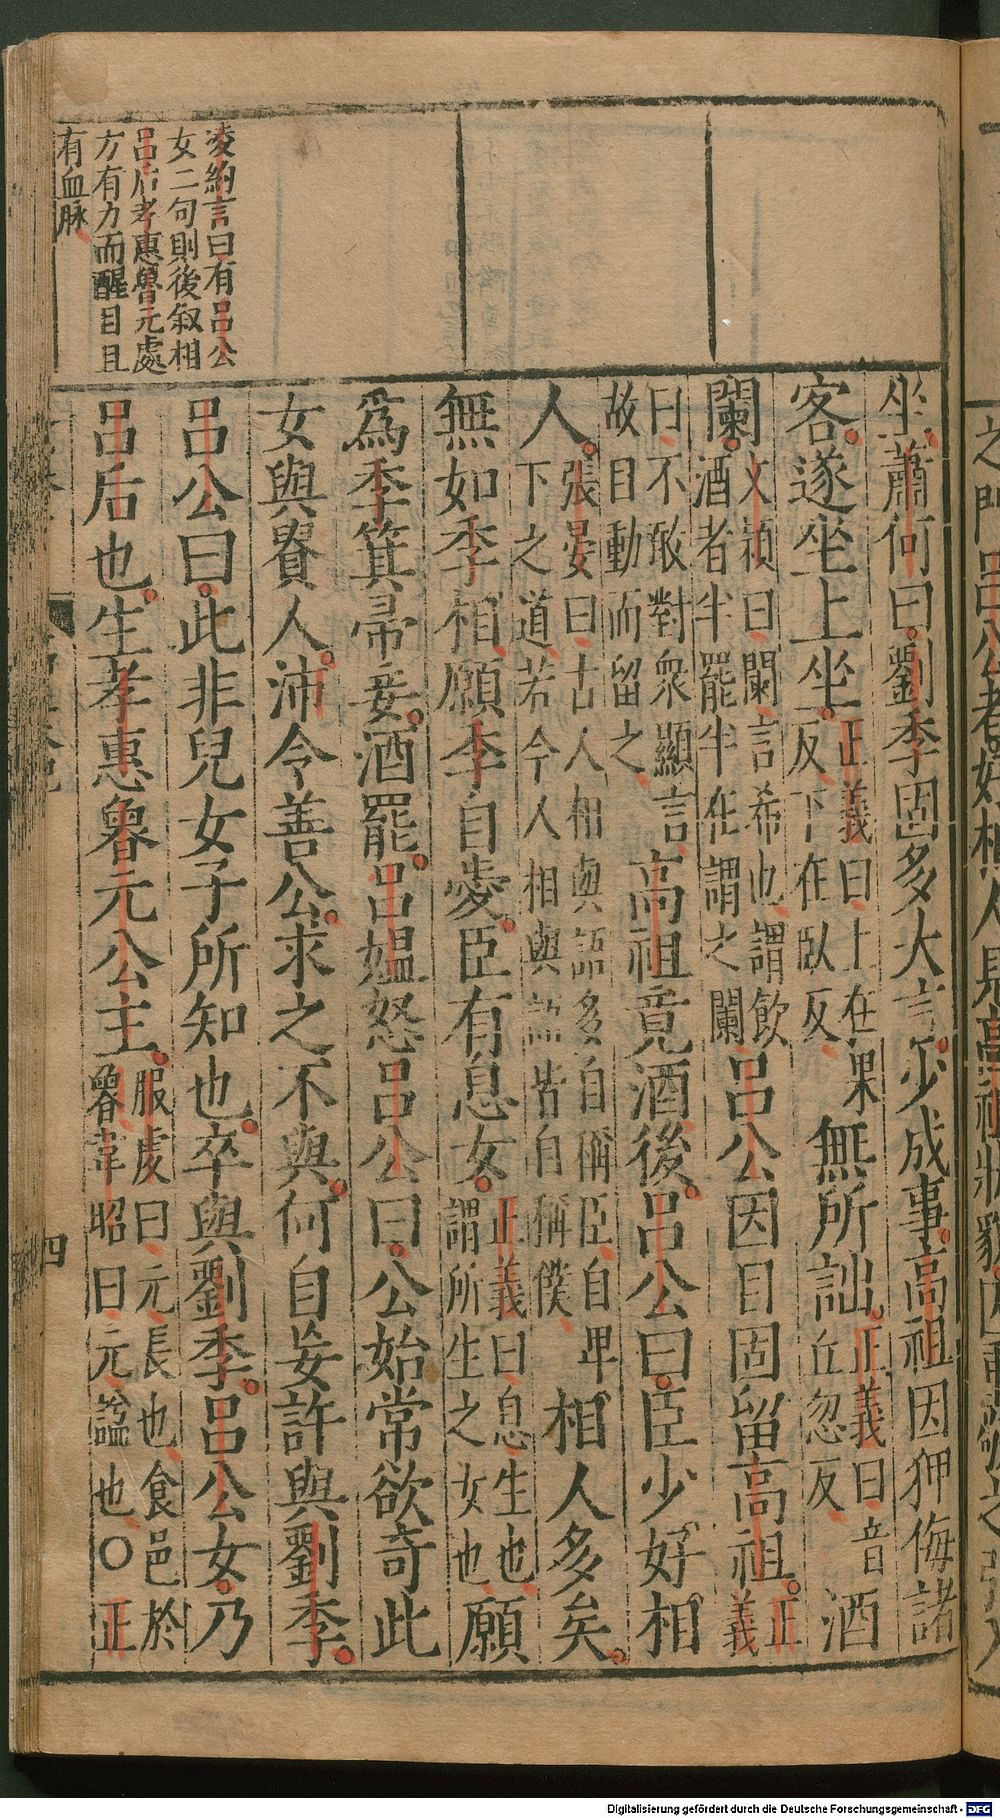 坐蕭何曰劉季固多大言少成事高祖因狎侮諸
客遂坐上坐正義曰上在果反下在臥反無所詘正義曰音丘忽反酒
闌文穎曰闌言希也謂飲酒者半罷半在謂之闌呂公因目固留高祖正義
曰不敢對衆顯言故目動而留之高祖竟酒後呂公曰臣少好相
人張晏曰古人相與語多自稱臣自卑下之道若今人相與語皆自稱僕相人多矣
無如季相願季自愛臣有息女正義曰息生也謂所生之女也願
爲季箕帚妾酒罷呂媼怒呂公曰公始常欲奇此
女與貴人沛令善公求之不與何自妄許與劉季
呂公曰此非兒女子所知也卒與劉季呂公女乃
呂后也生孝惠魯元公主服虔曰元長也食邑於魯韋昭曰元謚也○正
凌約言曰有呂公
女二句則後叙相
呂后孝惠魯元處
方有力而醒目且
有血脉
四
之門呂公者好相人見高祖狀貌
Digitalisierung gefördert durch die Deutsche Forschungsgemeinschaft - DFG